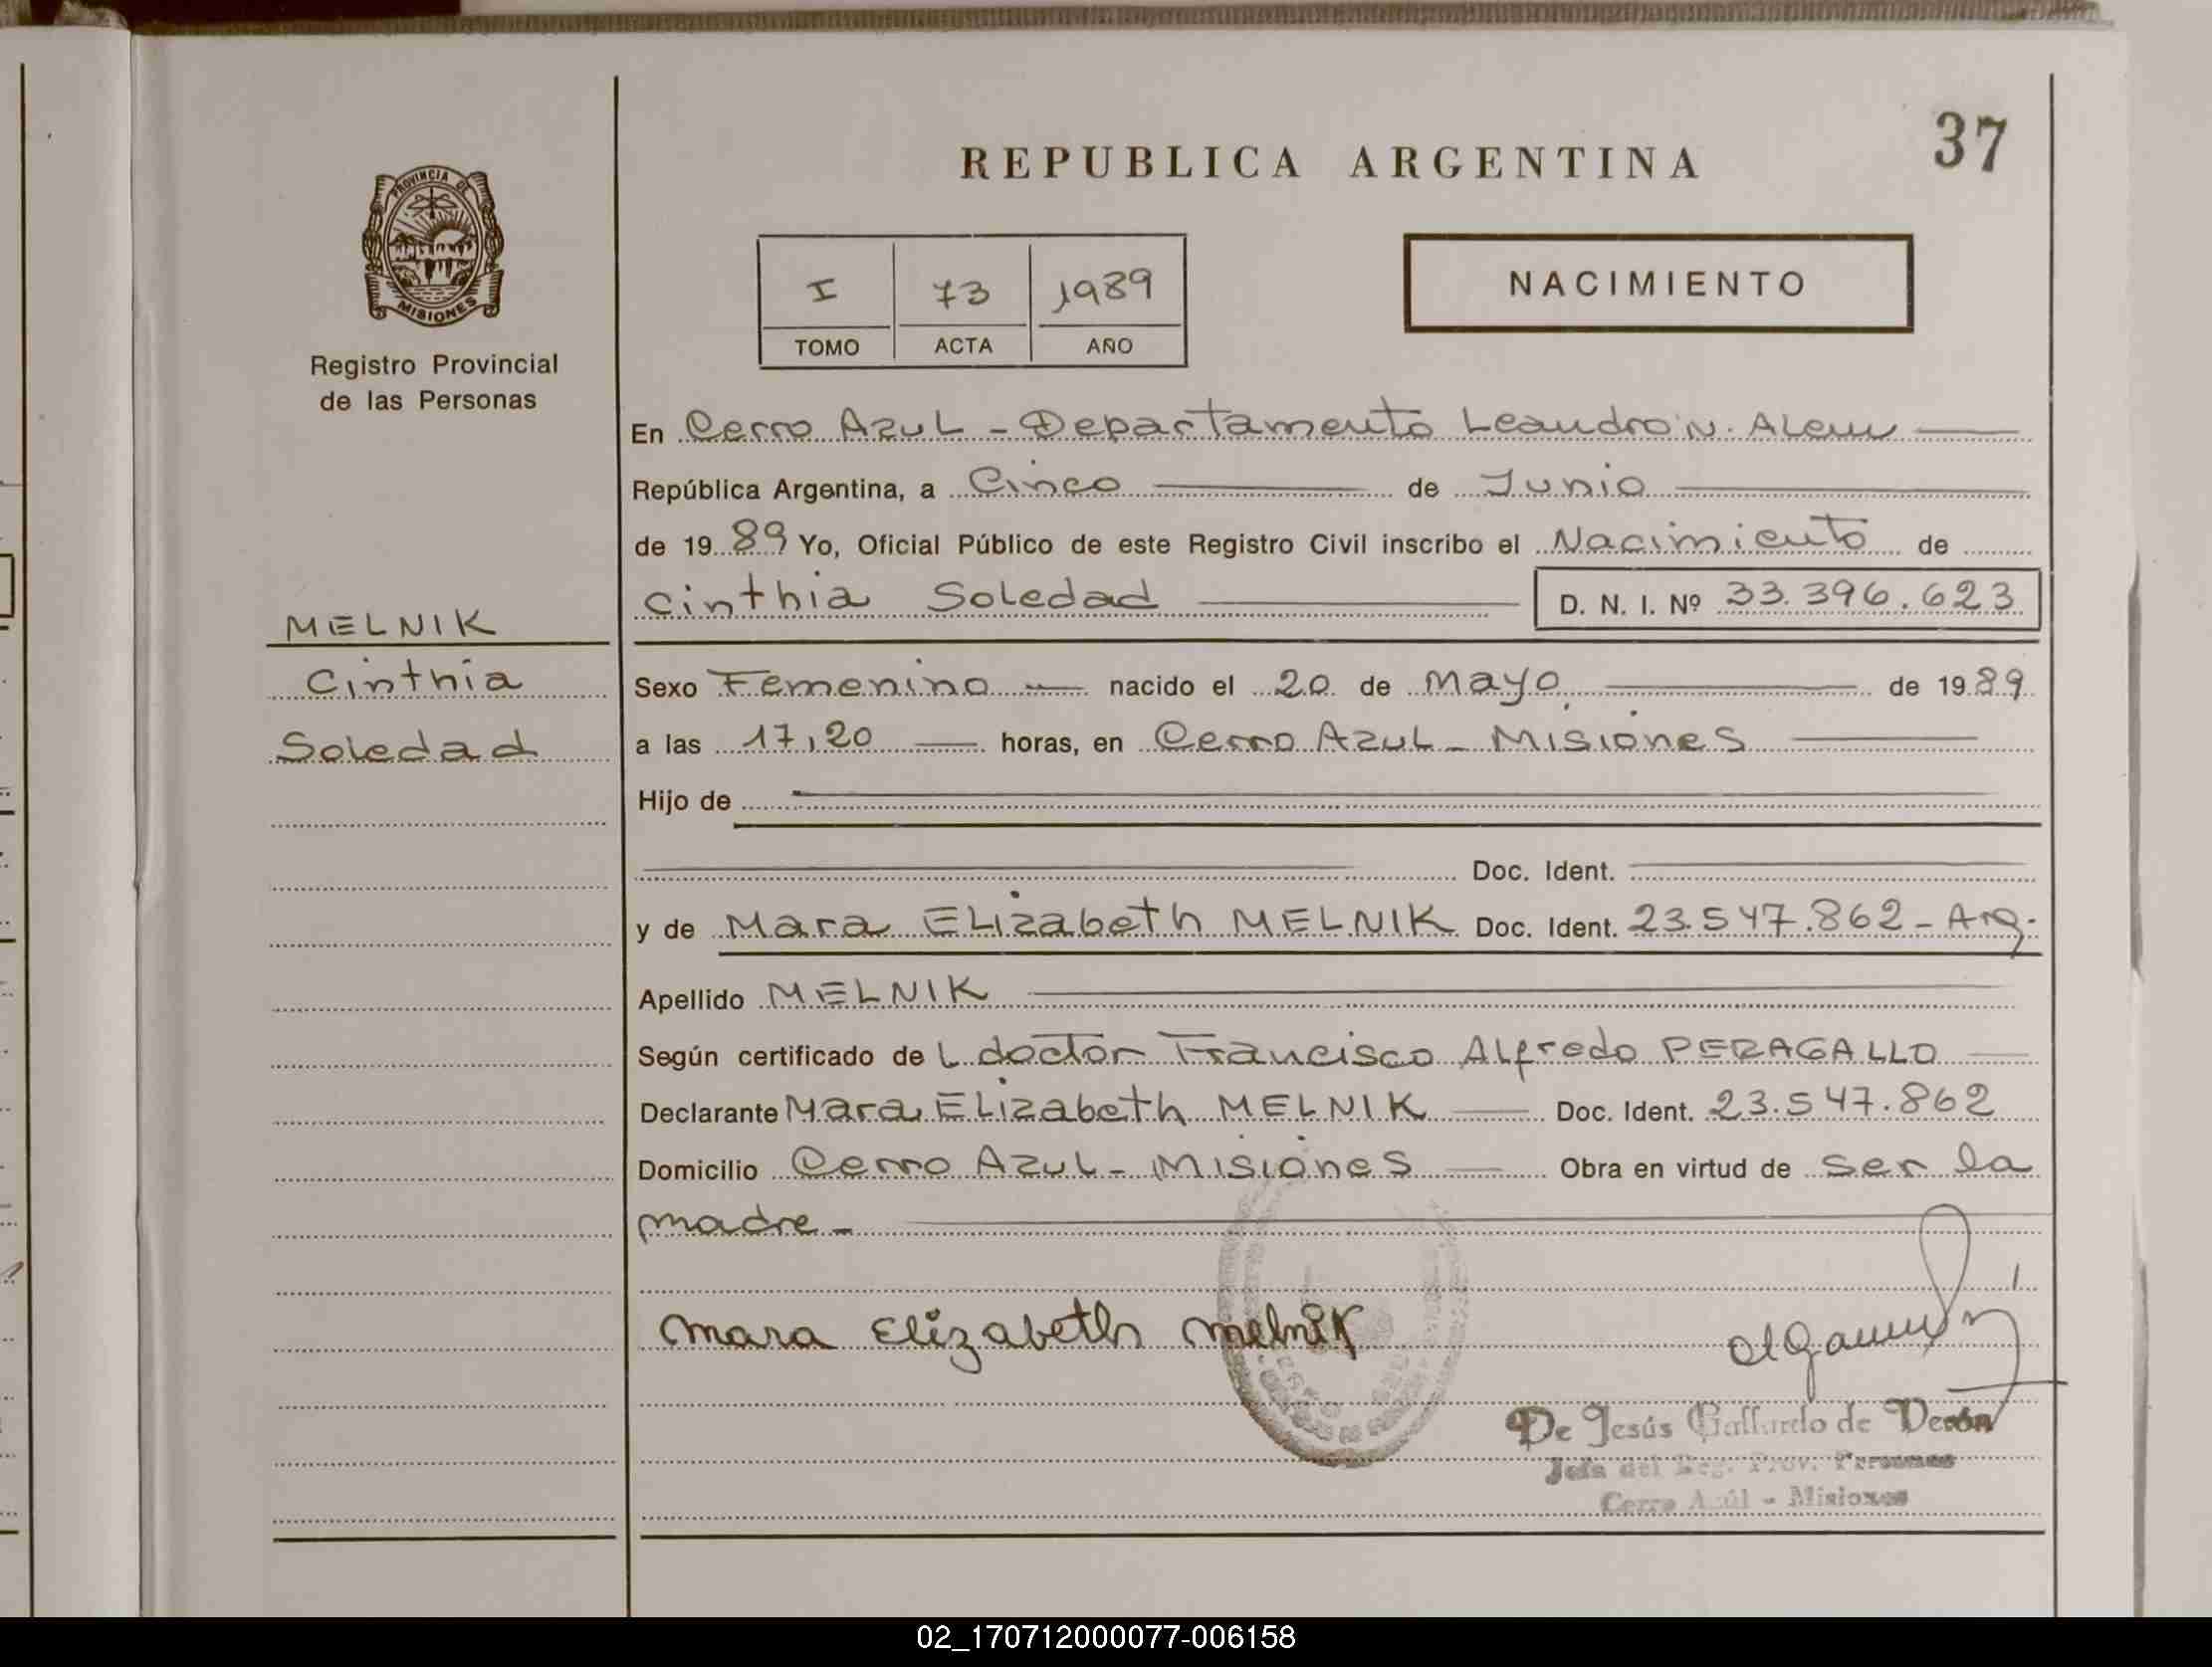 37
REPUBLICA ARGENTINA
PROVINCIA DE
MISIONES
Registro Provincial
de las Personas
I 73 1989
TOMO ACTA AÑO
NACIMIENTO
En Cerro Azul - Departamento Leandro N. Alem
República Argentina, a Cinco de Junio
de 1989 Yo, Oficial Público de este Registro Civil inscribo el Nacimiento de
Cinthia Soledad D. N. I. Nº 33.396.623
MELNIK
Cinthia
Soledad
Sexo Femenino nacido el 20 de Mayo de 1989
a las 17,20 horas, en Cerro Azul - Misiones
Hijo de
Doc. Ident.
y de Mara Elizabeth MELNIK Doc. Ident. 23.547.862 - Arg.
Apellido MELNIK
Según certificado del doctor Francisco Alfredo PERAGALLO
Declarante Mara Elizabeth MELNIK Doc. Ident. 23.547.862
Domicilio Cerro Azul - Misiones Obra en virtud de ser la
madre -
Mara Elizabeth Melnik
De Jesús Gallardo de Verón
Jefa del Reg. Prov. Personas
Cerro Azúl - Misiones
02_170712000077-006158